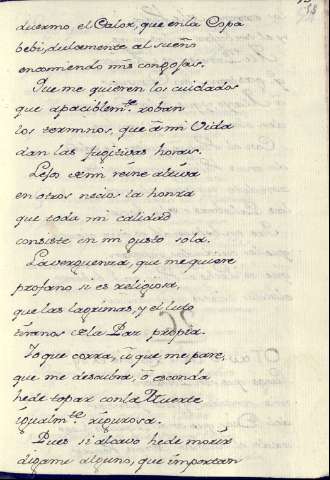 duermo el Calor, que en la Copa
bebi, dulcemente al sueño
encomiendo mis congojas.
Que me quieren los cuidados
que apaciblemte. roban
los terminos, que à mi Vida
dan las fugitivas horas.
Lejos de mi reine altiva
en otros necios la honra
que toda mi calidad
consiste en mi gusto sola.
La verguenza, que me quiere
profano si es religiosa,
que las lagrimas, y el luto
tiranos de la Paz propia.
Yo que corra, ù que me pare,
que me descubra, ò esconda
he de topar con la Muerte
igualmte. rigurosa.
Pues si al cavo he de morir
digame alguno, que importan